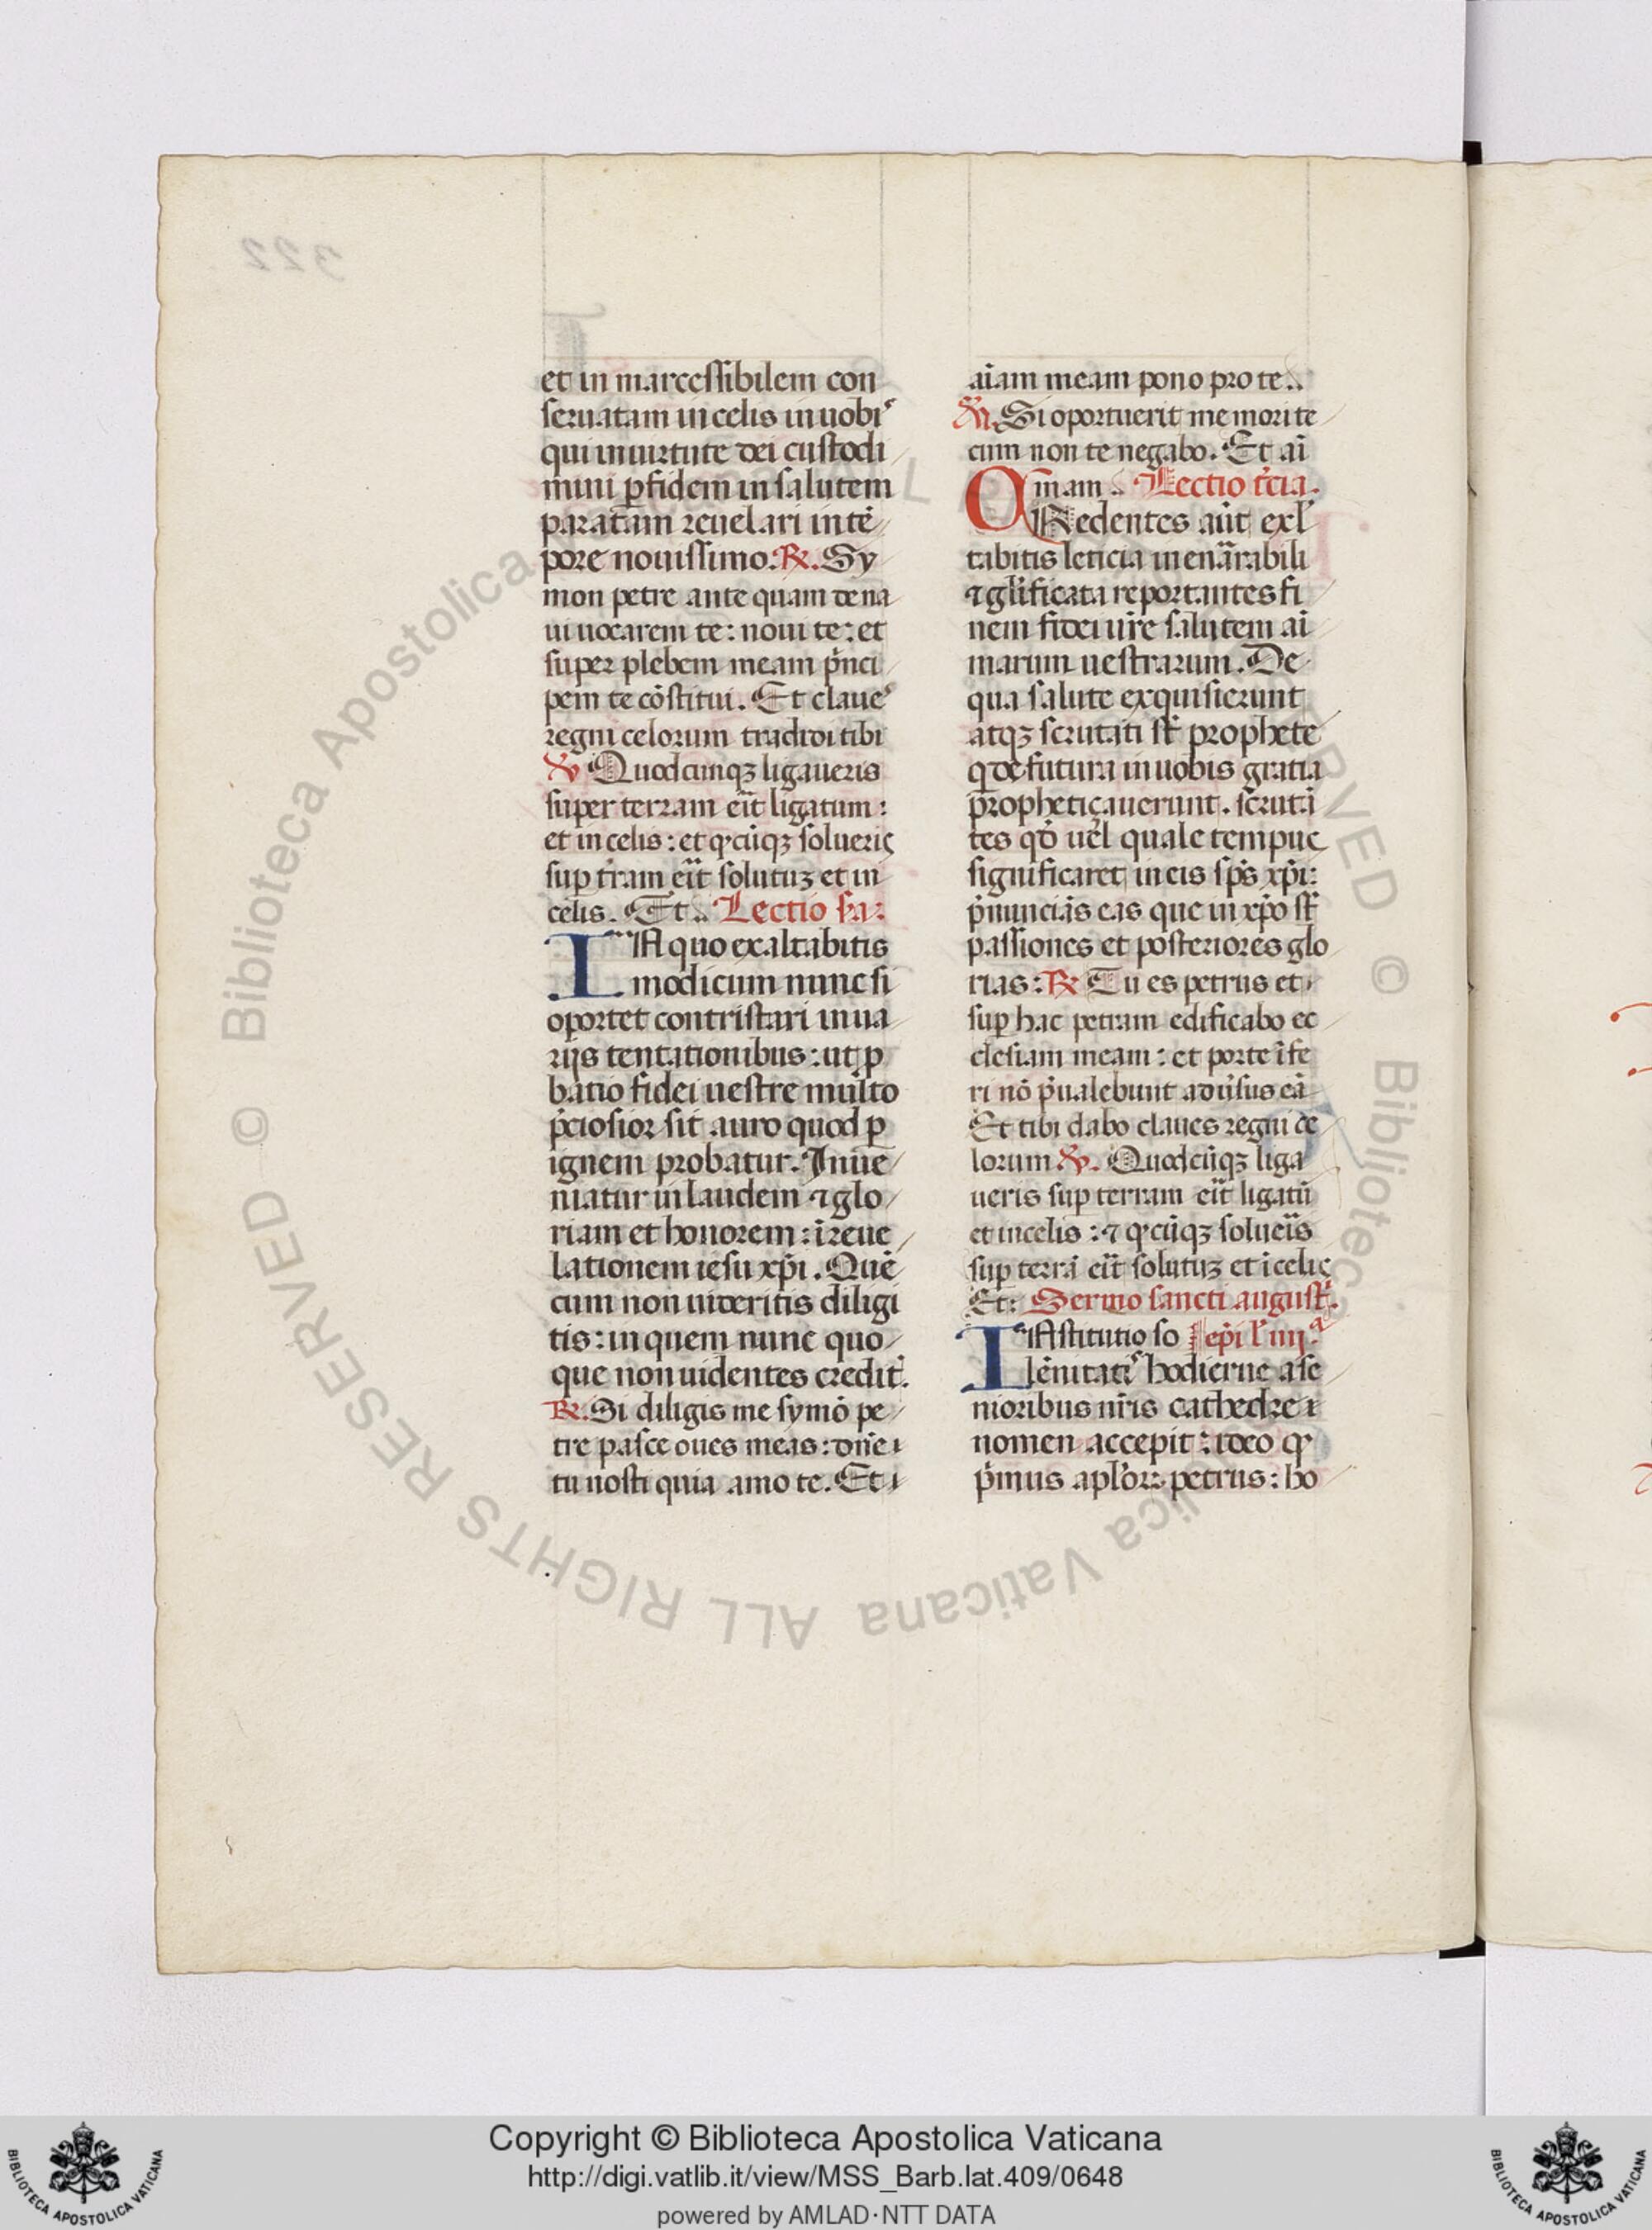 et in marcessibilem con
seruatam in celis in uobis
qui in uirtute dei custodi
mini p̱ fidem in salutem
paratam reuelari in tē
pore nouissimo. ℟. Sy
mon petre ante quam de na
ui uocarem te: noui te: et
super plebem meam p̓nci
pem te cōstitui. Et claues
regni celorum tradidi tibi
℣ Quodcunqꝫ ligaueris
super terram erit ligatum:
et in celis: et qcūqꝫ solueris
suꝑ t̓ram erit solutuꝫ et in
celis. Et.. Lectio sa:
IN quo exaltabitis
modicum nunc si
oportet contristari in ua
rijs tentationibus: ut ꝓ
batio fidei uestre multo
p̓ciosior sit auro quod ꝑ
ignem probatur. Inue
niatur in laudem ⁊ glo
riam et honorem: ī reue
lationem iesu xp̄i. Quē
cum non uideritis diligi
tis: in quem nunc quo
que non uidentes credit̓.
℟. Si diligis me symō pe
tre pasce oues meas: dn̄e
tu nosti quia amo te. Et
aīam meam pono pro te..
℣. Si oportuerit me mori te
cum non te negabo. Et aī
mam.. Lectio t̓cia.
CRedentes aūt exl̓
tabitis leticia inenārabili
⁊ gl̓ificata reportantes fi
nem fidei ur̄e salutem ai
marum uestrarum. De
qua salute exquisierunt
atqꝫ scrutati st̄ prophete
q de futura in uobis gratia
prophetiçauerunt. scrutā
tes qd̓ uel quale tempus
significaret in eis sp̄s xp̄i:
p̓nuncians eas que in xp̄o st̄
passiones et posteriores glo
rias: ℟ Tu es petrus et
suꝑ hac petram edificabo ec
clesiam meam: et porte īfe
ri nō p̓ualebunt adūsus eā
Et tibi dabo claues regni ce
lorum ℣. Quodcūqꝫ liga
ueris suꝑ terram erit ligatū
et in celis: ⁊ qcūqꝫ solueris
suꝑ terrā erit solutuꝫ et ī celis
Et: Sermo sancti august̄.
INstitutio so ep̄i l̄ iiijª
lēnitatis hodierne a se
nioribus nr̄is cathedre
nomen accepit: ideo q
p̓mus apl̓oꝝ petrus: ho
322
© Biblioteca Apostolica Vaticana ALL RIGHTS RESERVED
Copyright © Biblioteca Apostolica Vaticana
http://digi.vatlib.it/view/MSS_Barb.lat.409/0648
powered by AMLAD·NTT DATA
BIBLIOTECA APOSTOLICA VATICANA
BIBLIOTECA APOSTOLICA VATICANA